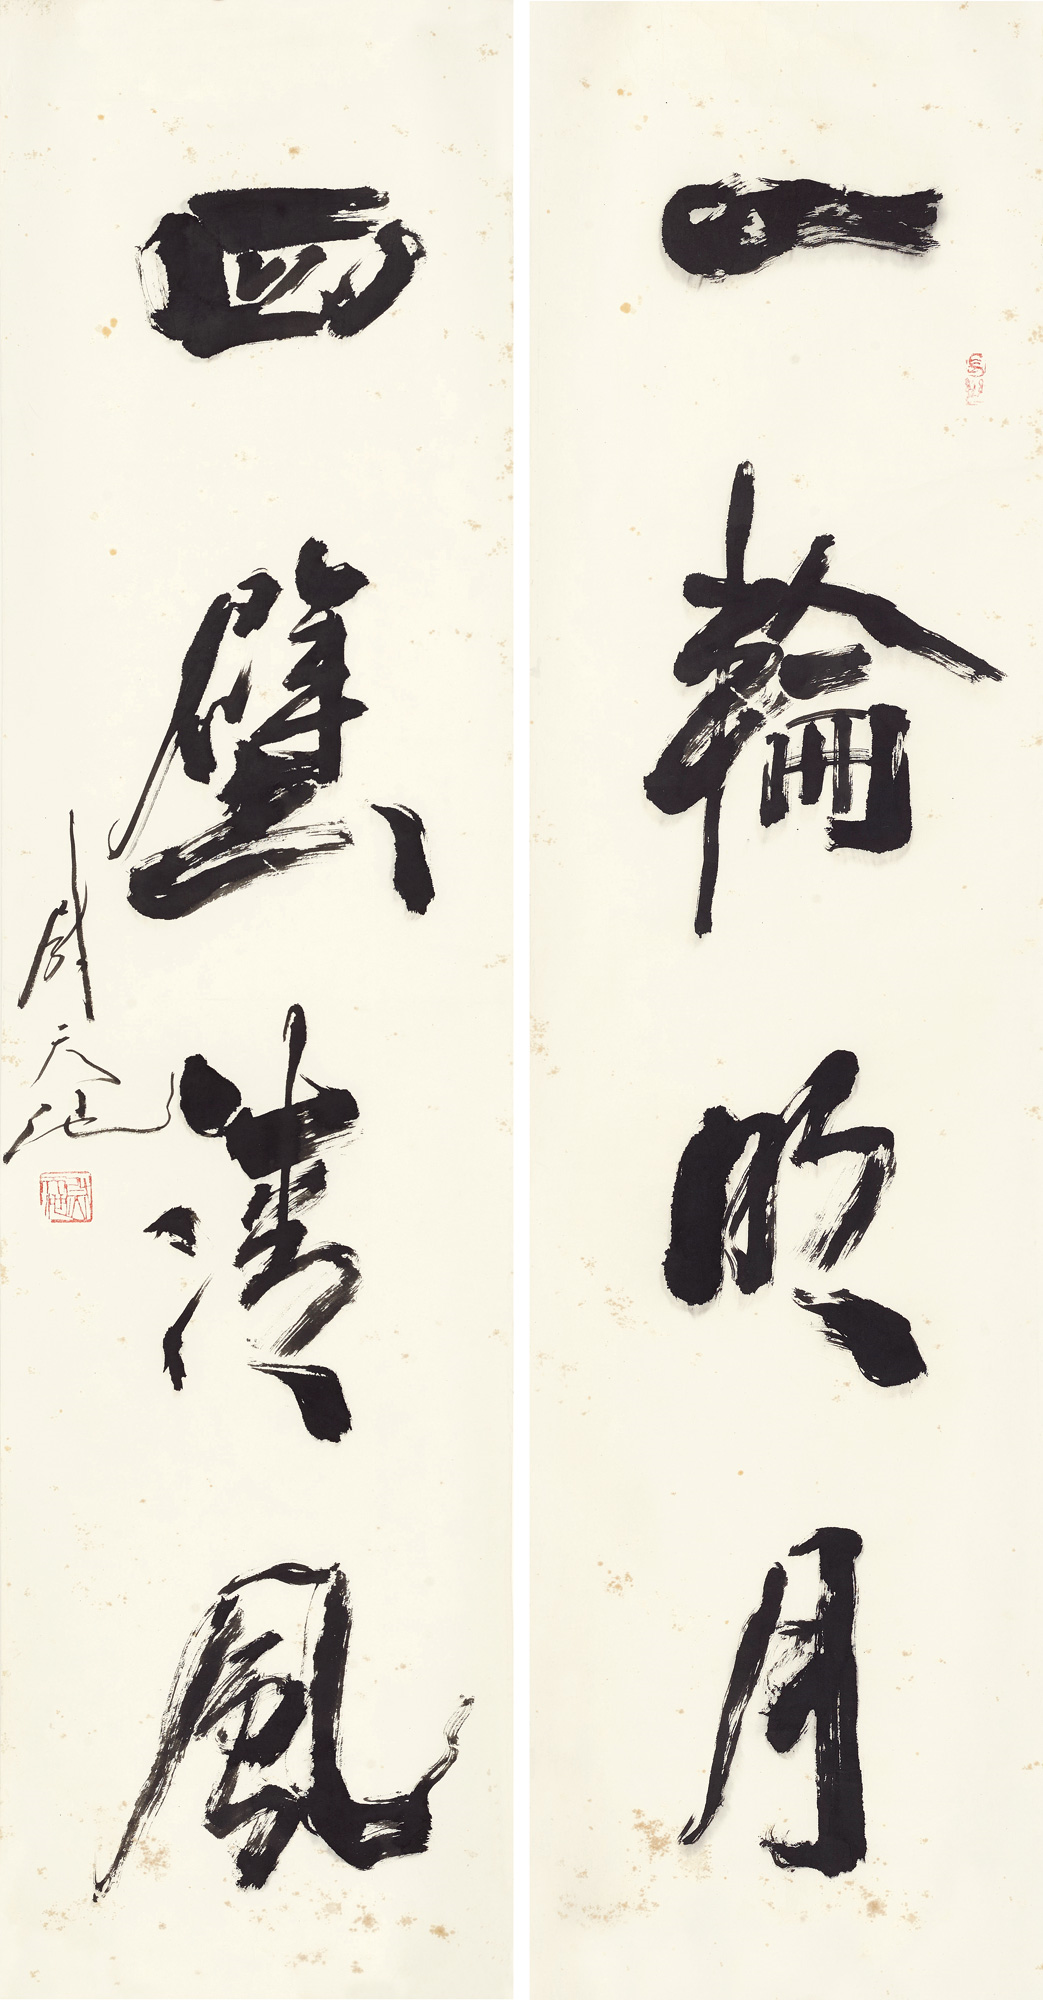 一輪明月
四壁清風
周天池